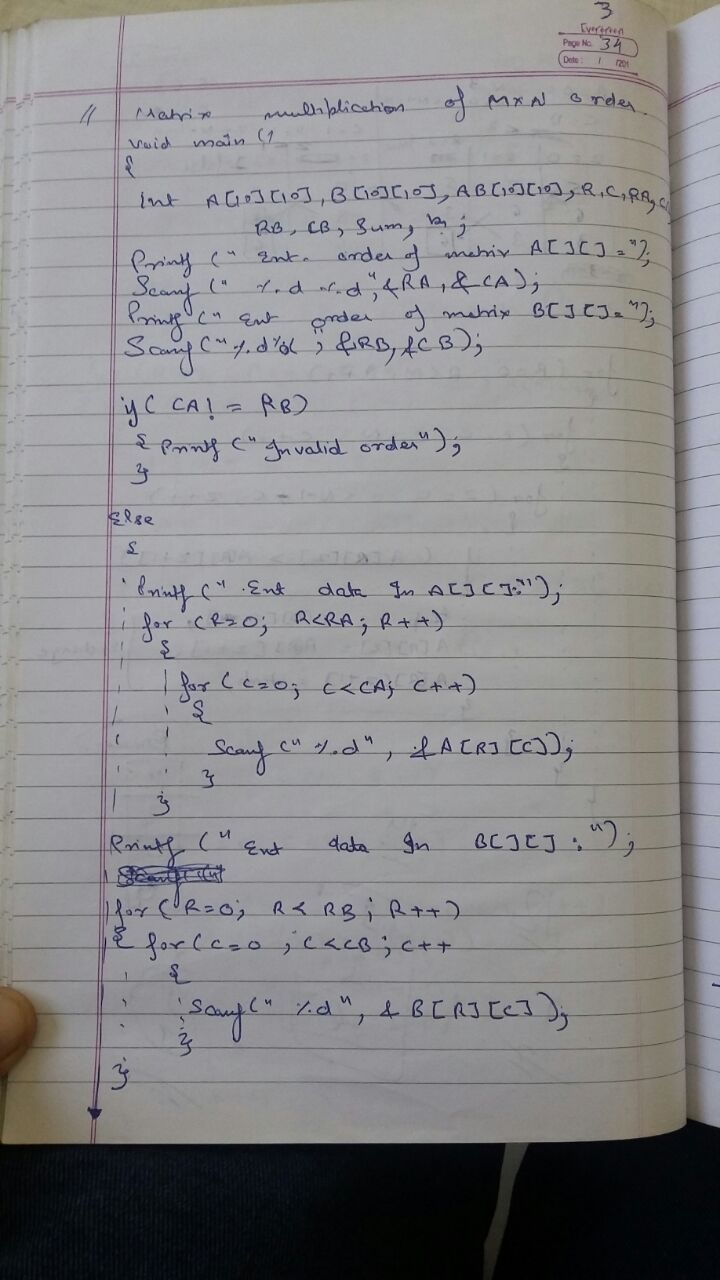 3
Evergreen
Page No. 34
Date: / /201
// Matrix multiplication of MxN order.
void main ()
{
int A[10][10], B[10][10], AB[10][10], R, C, RA,
RB, CB, Sum, k;
Printf (" Ent. order of metrix A[][]=");
Scanf (" %d %d", &RA, &CA);
Printf (" Ent order of metrix B[][]=");
Scanf ("%d%d", &RB, &CB);
if( CA! = RB)
{ Printf (" Invalid order");
}
Else
{
Printf (" Ent data In A[][]:");
for (R=0; R<RA; R++)
{
for (C=0; C<CA; C++)
{
Scanf (" %d", &A[R][C]);
}
}
Printf (" Ent data In B[][] : ");
for (R=0; R< RB; R++)
{ for(C=0 ; C<CB; C++
{
Scanf(" %d", & B[R][C]);
}
}